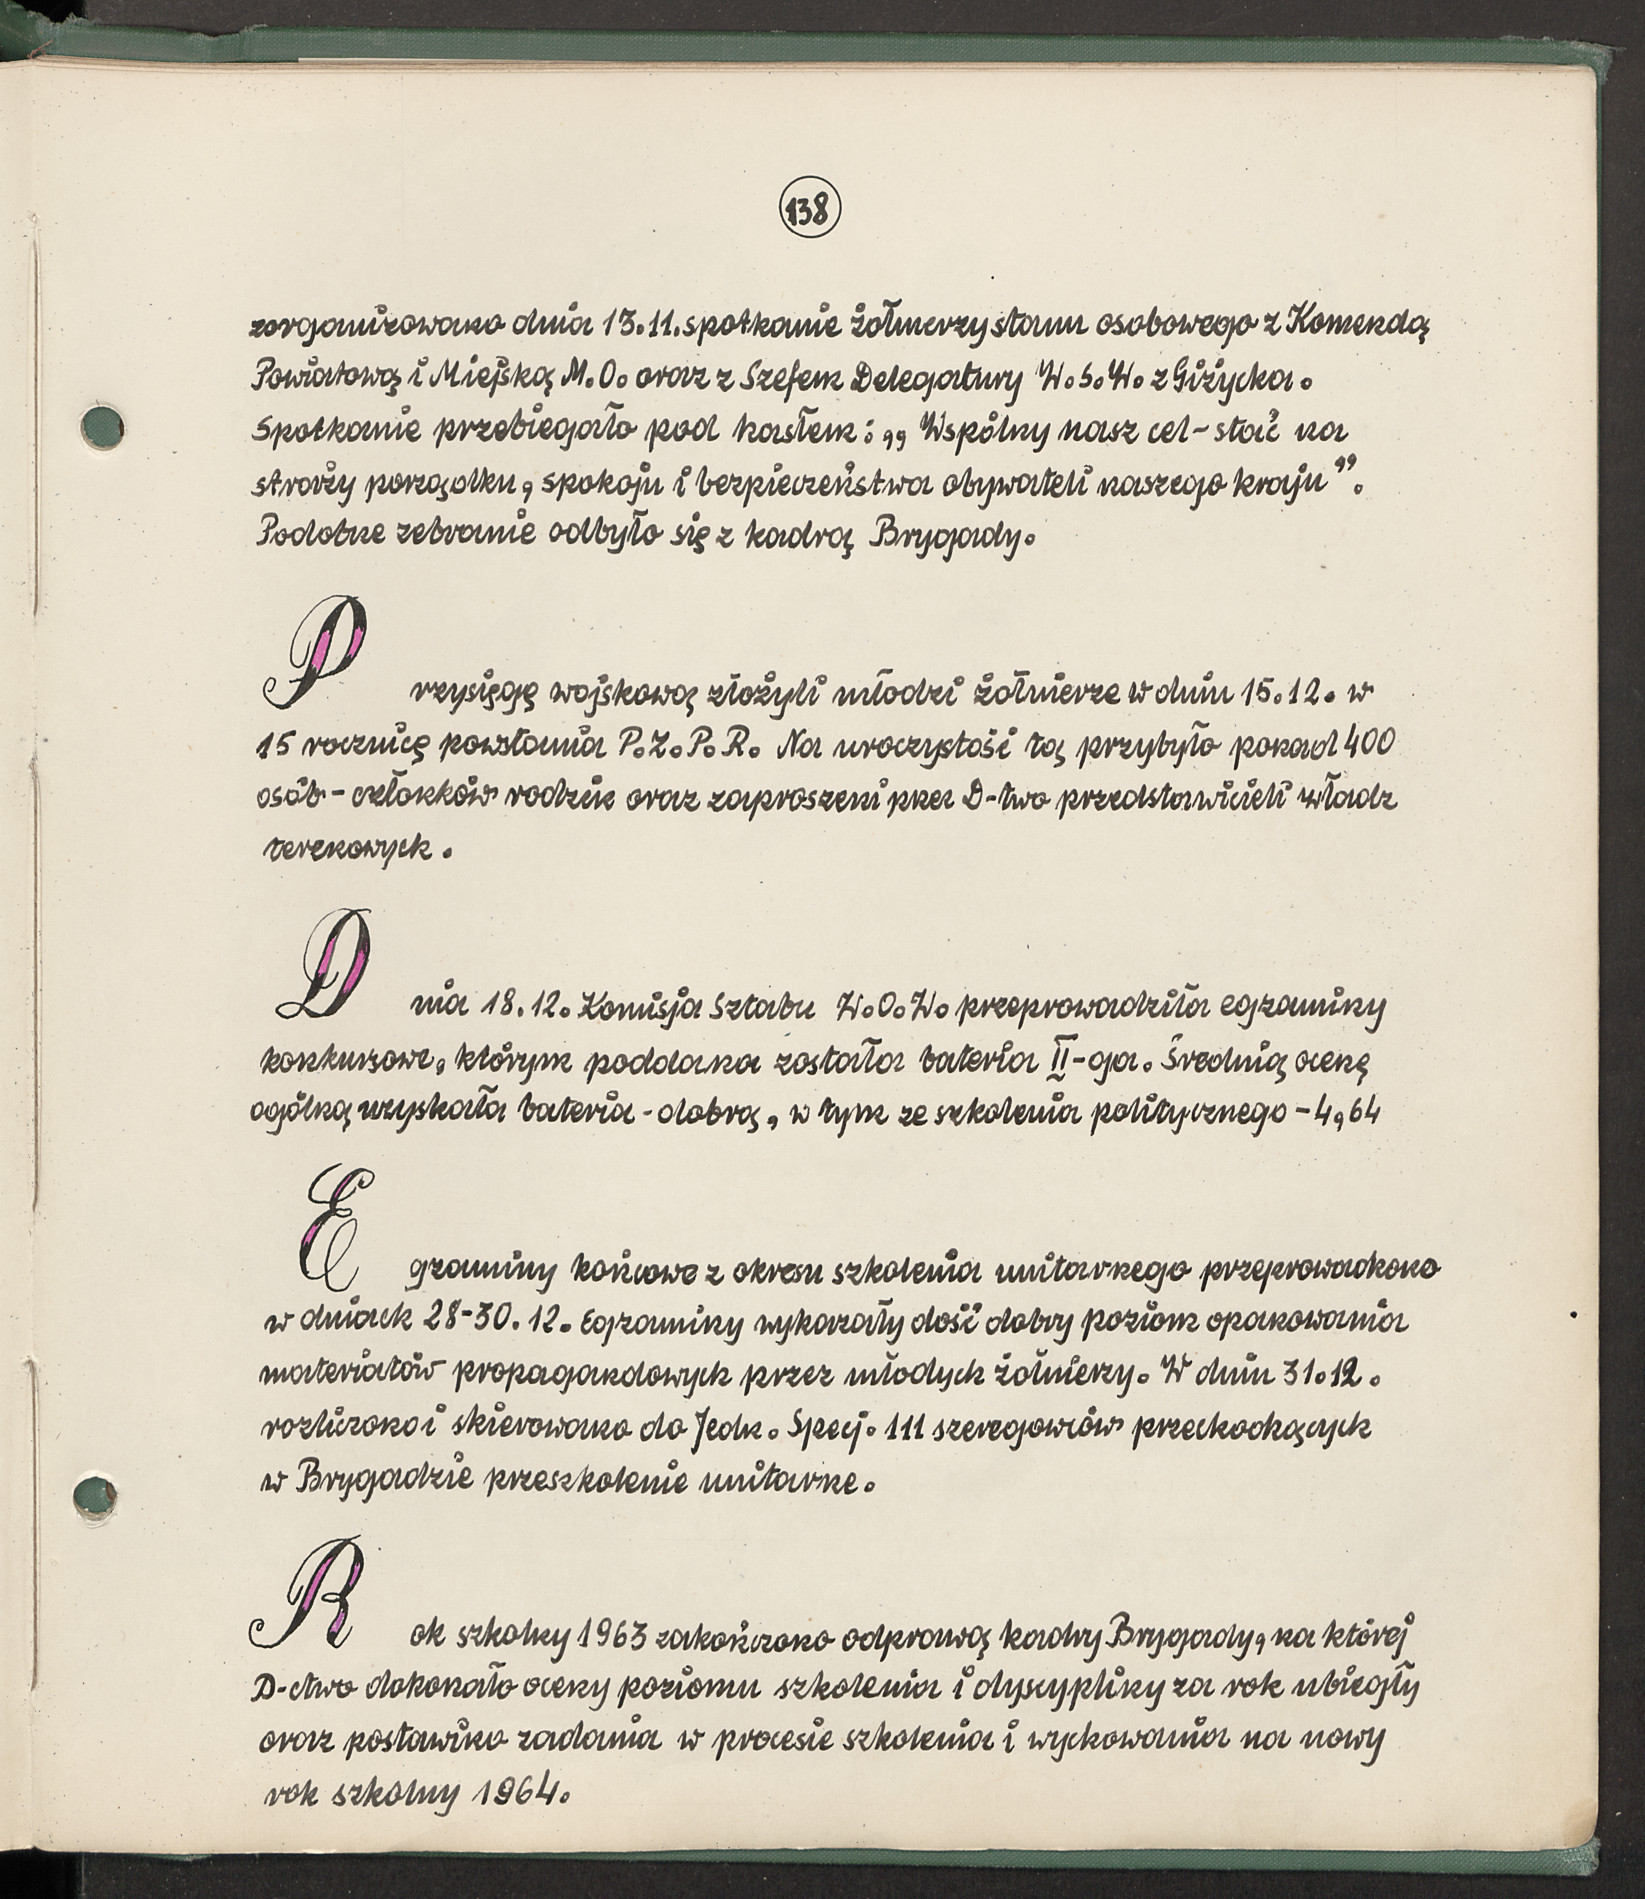 138
zorganizowano dnia 13.11. spotkanie żołnierzy stanu osobowego z Komendą
Powiatową i Miejską M.O. oraz z Szefem Delegatury W.S.W. z Giżycka.
Spotkanie przebiegało pod hasłem: „Wspólny nasz cel - stać na
straży porządku, spokoju i bezpieczeństwa obywateli naszego kraju”.
Podobne zebranie odbyło się z kadrą Brygady.
Przysięgę wojskową złożyli młodzi żołnierze w dniu 15.12. w
15 rocznicę powstania P.Z.P.R. Na uroczystość tą przybyło ponad 400
osób - członków rodzin oraz zaproszeni przez D-two przedstawicieli władz
terenowych.
Dnia 18.12. Komisja Sztabu W.O.W. przeprowadziła egzaminy
konkursowe, którym poddana została bateria II-ga. Średnią ocenę
ogólną uzyskała bateria - dobrą, w tym ze szkolenia politycznego - 4,64
Egzaminy końcowe z okresu szkolenia unitarnego przeprowadzono
w dniach 28-30.12. Egzaminy wykazały dość dobry poziom opanowania
materiałów propagandowych przez młodych żołnierzy. W dniu 31.12.
rozliczono i skierowano do Jedn. Specj. 111 szeregowców przechodzących
w Brygadzie przeszkolenie unitarne.
Rok szkolny 1963 zakończono odprawą kadry Brygady, na której
D-ctwo dokonało oceny poziomu szkolenia i dyscypliny za rok ubiegły
oraz postawiono zadania w procesie szkolenia i wychowania na nowy
rok szkolny 1964.